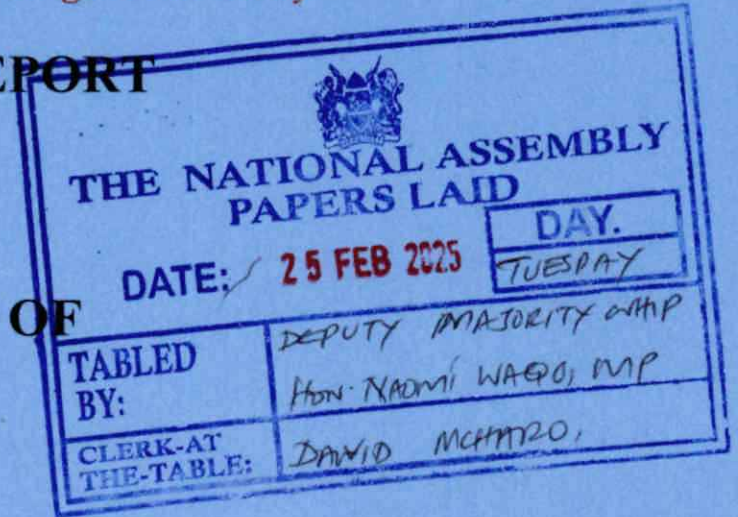 REPORT
THE NATIONAL ASSEMBLY
PAPERS LAID
DATE: 25 FEB 2025
DAY.
TUESDAY
OF
TABLED BY:
DEPUTY MAJORITY WHIP
HON. NAOMI WAQO, MP
CLERK-AT THE-TABLE:
DAVID MCHARO,